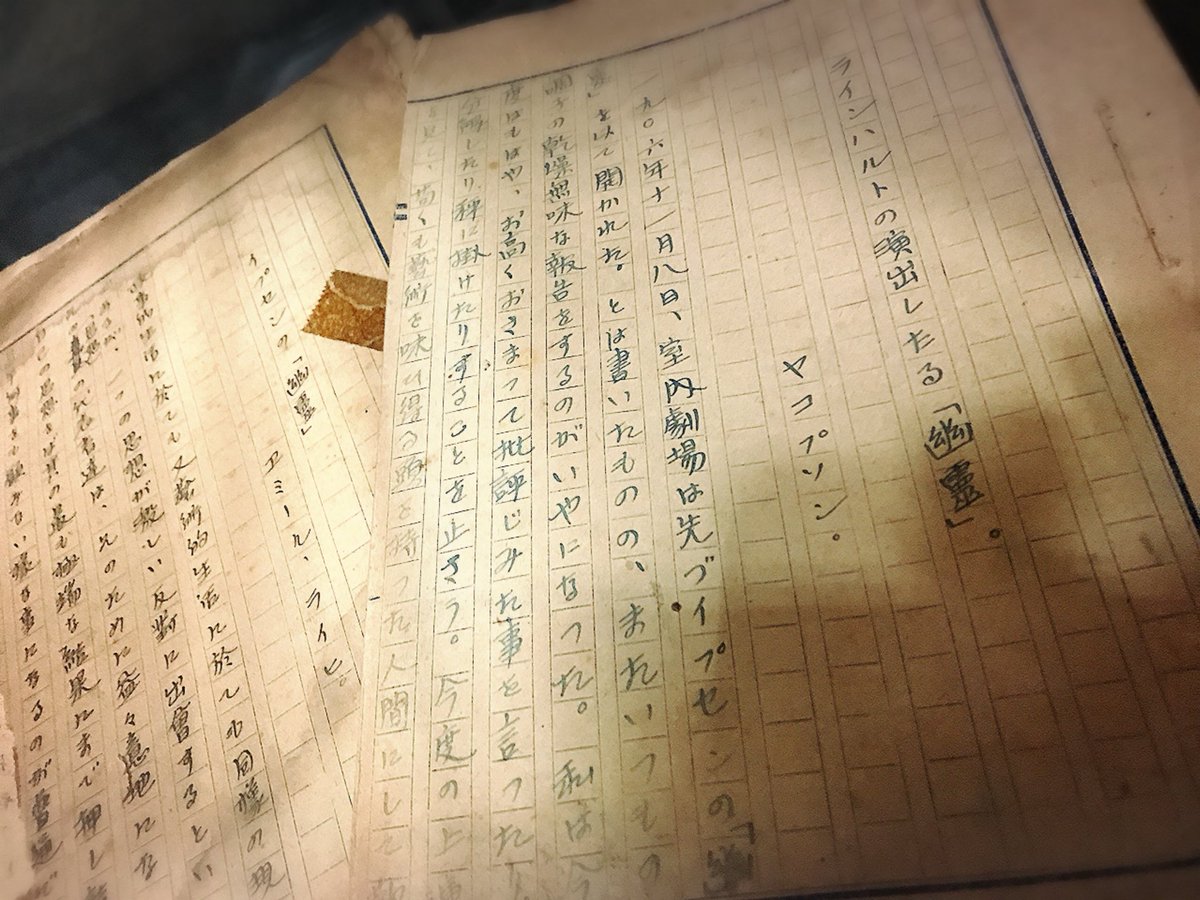 ラインハルトの演出したる「幽靈」。
ヤコブソン。
一九〇六年十一月八日、室内劇場は先づイプセンの「幽
靈」を以て開かれた。とは書いたものの、またいつもの
調子の乾燥無味な報告をするのがいやになつた。私は今
度はもはや、お高くおさまつて批評じみた事を言つた
分解したり、秤に掛けたりすることを止さう。今度の上
を見て、苟くも藝術を味ひ得る頭を持つた人間にして
イプセンの「幽靈」
エミール、ライヒ。
に於ても又藝術的生活に於ても同樣の現
一つの思想が激しい反對に出會するとい
代表者達は、そのために益々意地にな
の思想を其の最も極端な結果にまで押し
樣な事になるのが普通だ